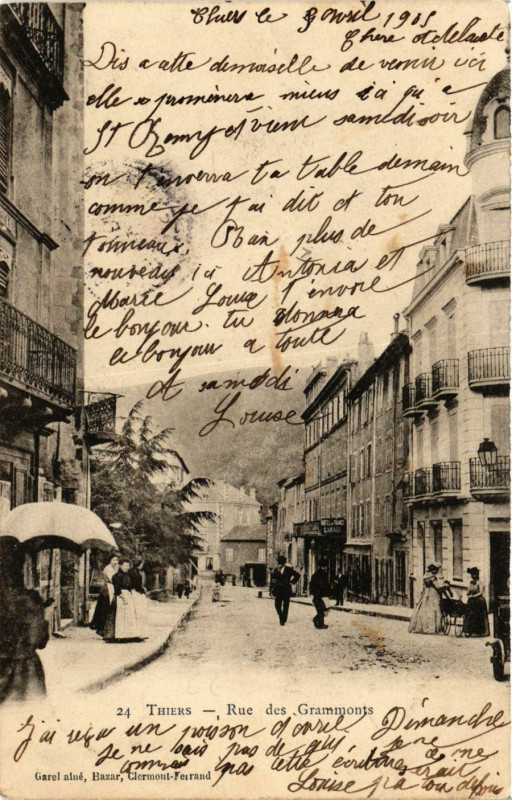 Thiers le 9 avril 1905
Chere Adelaide
Dis a cette demoiselle de venir ici
elle se promènera mieus ici qu'a
St Remy et vient samedi soir
on t'enverra ta table demain
comme je t'ai dit et ton
tonneau. Rien plus de
nouveau ici Antonia et
Marie Louise t'envoie
le bonjour. tu donnera
le bonjour a toute
A samedi
Louise
24 THIERS — Rue des Grammonts
J'ai reçu un poisson d'avril Démandre
je ne sais pas de qui, je ne
connais pas cette écriture ce ne
serait
Louise pa ton
Garel aîné, Bazar, Clermont-Ferrand